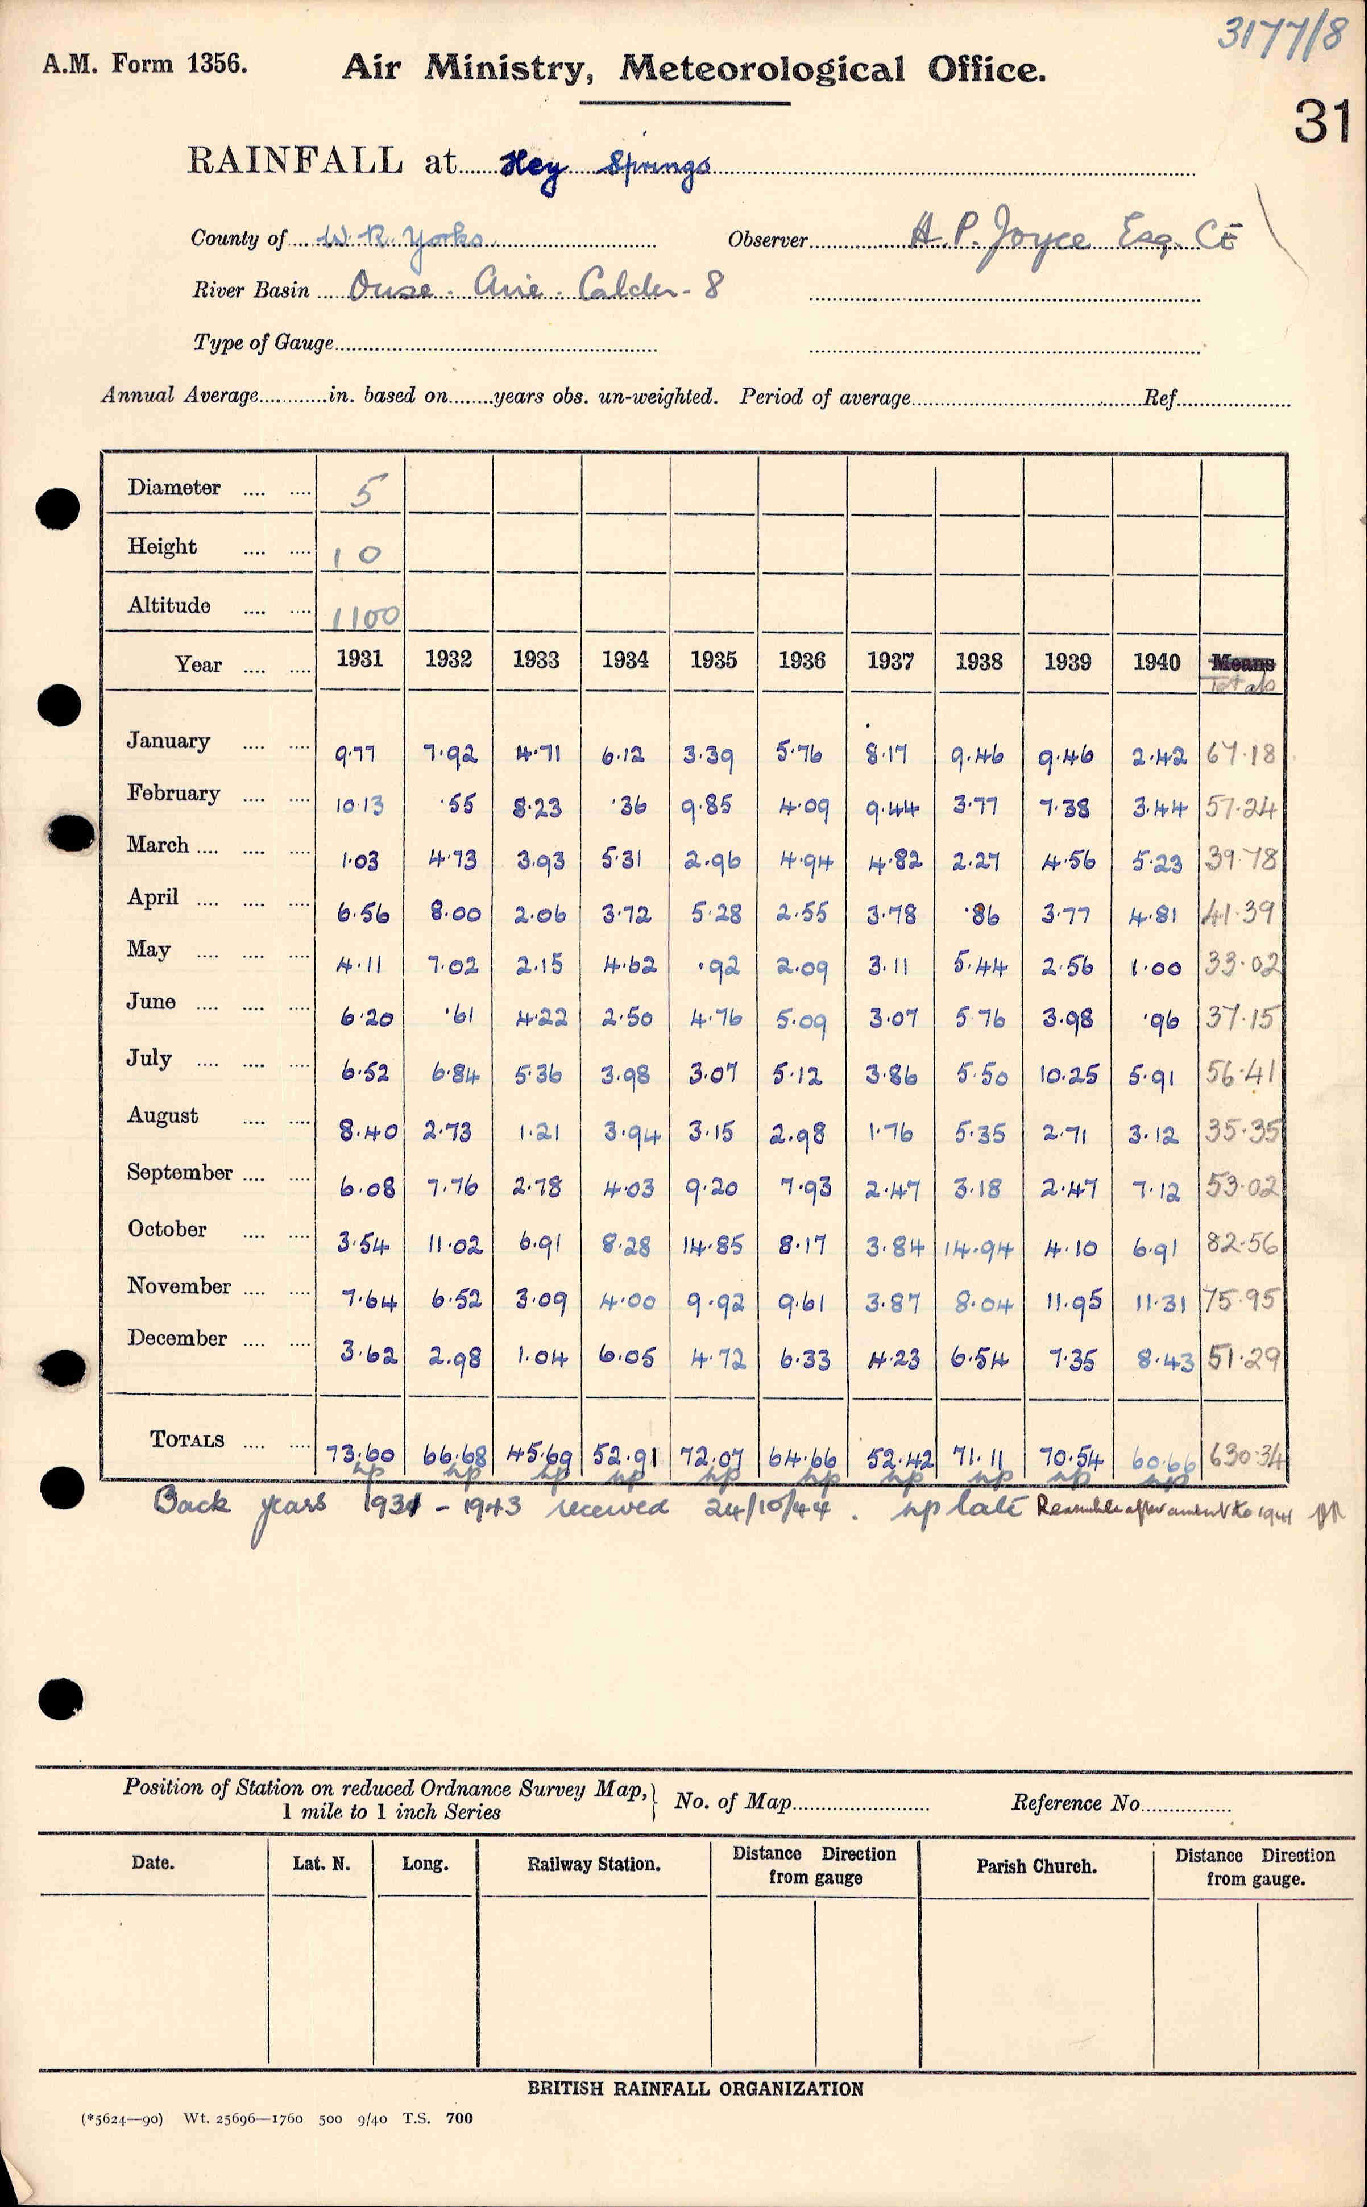 3177/8
A.M. Form 1356.
Air Ministry, Meteorological Office.
31
RAINFALL at Hey Springs
County of W. R. Yorks. Observer A.P. Joyce Esq. CE
River Basin Ouse. Aire. Calder - 8
Type of Gauge
Annual Average in. based on years obs. un-weighted. Period of average Ref
Diameter .... .... 5
Height .... .... 10
Altitude .... .... 1100
Year .... .... 1931 1932 1933 1934 1935 1936 1937 1938 1939 1940 Means
Totals
January .... .... 9.77 7.92 4.71 6.12 3.39 5.76 8.17 9.46 9.46 2.42 67.18
February .... .... 10.13 .55 8.23 .36 9.85 4.09 9.44 3.77 7.38 3.44 57.24
March .... .... .... 1.03 4.73 3.93 5.31 2.96 4.94 4.82 2.27 4.56 5.23 39.78
April .... .... .... 6.56 8.00 2.06 3.72 5.28 2.55 3.78 .86 3.77 4.81 41.39
May .... .... .... 4.11 7.02 2.15 4.62 .92 2.09 3.11 5.44 2.56 1.00 33.02
June .... .... .... 6.20 .61 4.22 2.50 4.76 5.09 3.07 5.76 3.98 .96 37.15
July .... .... .... 6.52 6.84 5.36 3.98 3.07 5.12 3.86 5.50 10.25 5.91 56.41
August .... .... 8.40 2.73 1.21 3.94 3.15 2.98 1.76 5.35 2.71 3.12 35.35
September .... .... 6.08 7.76 2.78 4.03 9.20 7.93 2.47 3.18 2.47 7.12 53.02
October .... .... 3.54 11.02 6.91 8.28 14.85 8.17 3.84 14.94 4.10 6.91 82.56
November .... .... 7.64 6.52 3.09 4.00 9.92 9.61 3.87 8.04 11.95 11.31 75.95
December .... .... 3.62 2.98 1.04 6.05 4.72 6.33 4.23 6.54 7.35 8.43 51.29
TOTALS .... .... 73.60 66.68 45.69 52.91 72.07 64.66 52.42 71.11 70.54 60.66 630.34
np np np np np np np np np np
Back years 1931 - 1943 received 24/10/44. np late
Position of Station on reduced Ordnance Survey Map,
1 mile to 1 inch Series
No. of Map Reference No.
Date. Lat. N. Long. Railway Station. Distance Direction from gauge Parish Church. Distance Direction from gauge.
BRITISH RAINFALL ORGANIZATION
(*5624—90) Wt. 25696—1760 500 9/40 T.S. 700